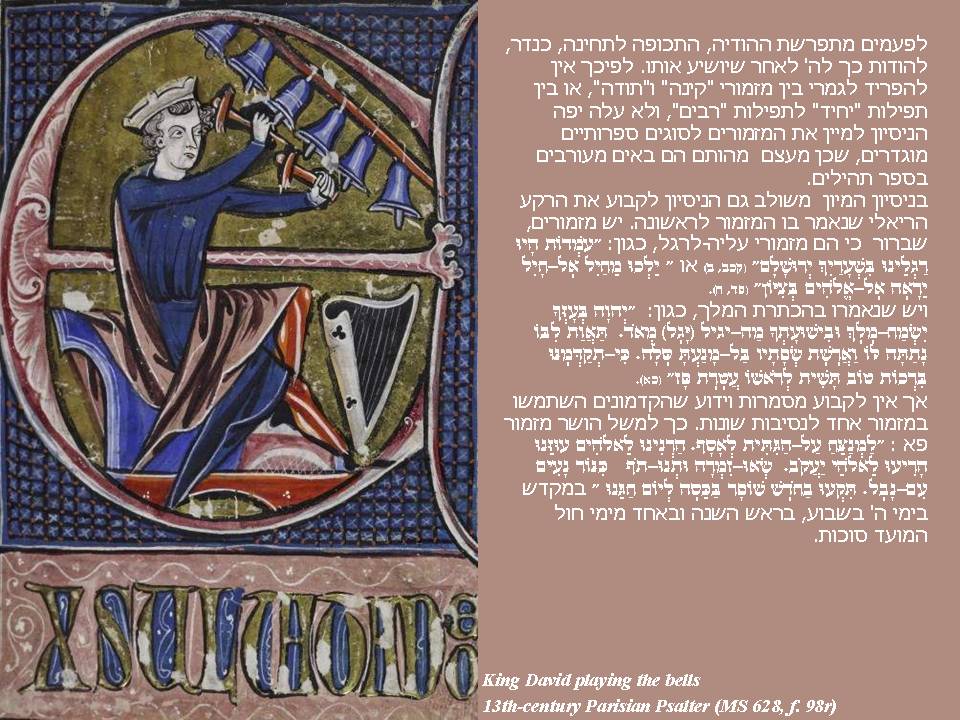 לפעמים מתפרשת ההודיה, התכופה לתחינה, כנדר,
להודות כך לה' לאחר שיושיע אותו. לפיכך אין
להפריד לגמרי בין מזמורי "קינה" ו"תודה", או בין
תפילות "יחיד" לתפילות "רבים", ולא עלה יפה
הניסיון למיין את המזמורים לסוגים ספרותיים
מוגדרים, שכן מעצם מהותם הם באים מעורבים
בספר תהילים.
בניסיון המיון משולב גם הניסיון לקבוע את הרקע
הריאלי שנאמר בו המזמור לראשונה. יש מזמורים,
שברור כי הם מזמורי עליה-לרגל, כגון: "עֹמְדוֹת הָיוּ
רַגְלֵינוּ בִּשְׁעָרַיִךְ יְרוּשָׁלִָם" (קכב, ב) או " יֵלְכוּ מֵחַיִל אֶל-חָיִל
יֵרָאֶה אֶל-אֱלֹהִים בְּצִיּוֹן" (פד, ח).
ויש שנאמרו בהכתרת המלך, כגון: "יְהוָה בְּעָזְּךָ
יִשְׂמַח-מֶלֶךְ וּבִישׁוּעָתְךָ מַה-יגיל (יָּגֶל) מְאֹד. תַּאֲוַת לִבּוֹ
נָתַתָּה לּוֹ וַאֲרֶשֶׁת שְׂפָתָיו בַּל-מָנַעְתָּ סֶּלָה. כִּי-תְקַדְּמֶנּוּ
בִּרְכוֹת טוֹב תָּשִׁית לְרֹאשׁוֹ עֲטֶרֶת פָּז" (כא).
אך אין לקבוע מסמרות וידוע שהקדמונים השתמשו
במזמור אחד לנסיבות שונות. כך למשל הושר מזמור
פא : "לַמְנַצֵּחַ עַל-הַגִּתִּית לְאָסָף. הַרְנִינוּ לֵאלֹהִים עוּזֵּנוּ
הָרִיעוּ לֵאלֹהֵי יַעֲקֹב. שְׂאוּ-זִמְרָה וּתְנוּ-תֹף כִּנּוֹר נָעִים
עִם-נָבֶל. תִּקְעוּ בַחֹדֶשׁ שׁוֹפָר בַּכֵּסֶה לְיוֹם חַגֵּנוּ " במקדש
בימי ה' בשבוע, בראש השנה ובאחד מימי חול
המועד סוכות.
King David playing the bells
13th-century Parisian Psalter (MS 628, f. 98r)